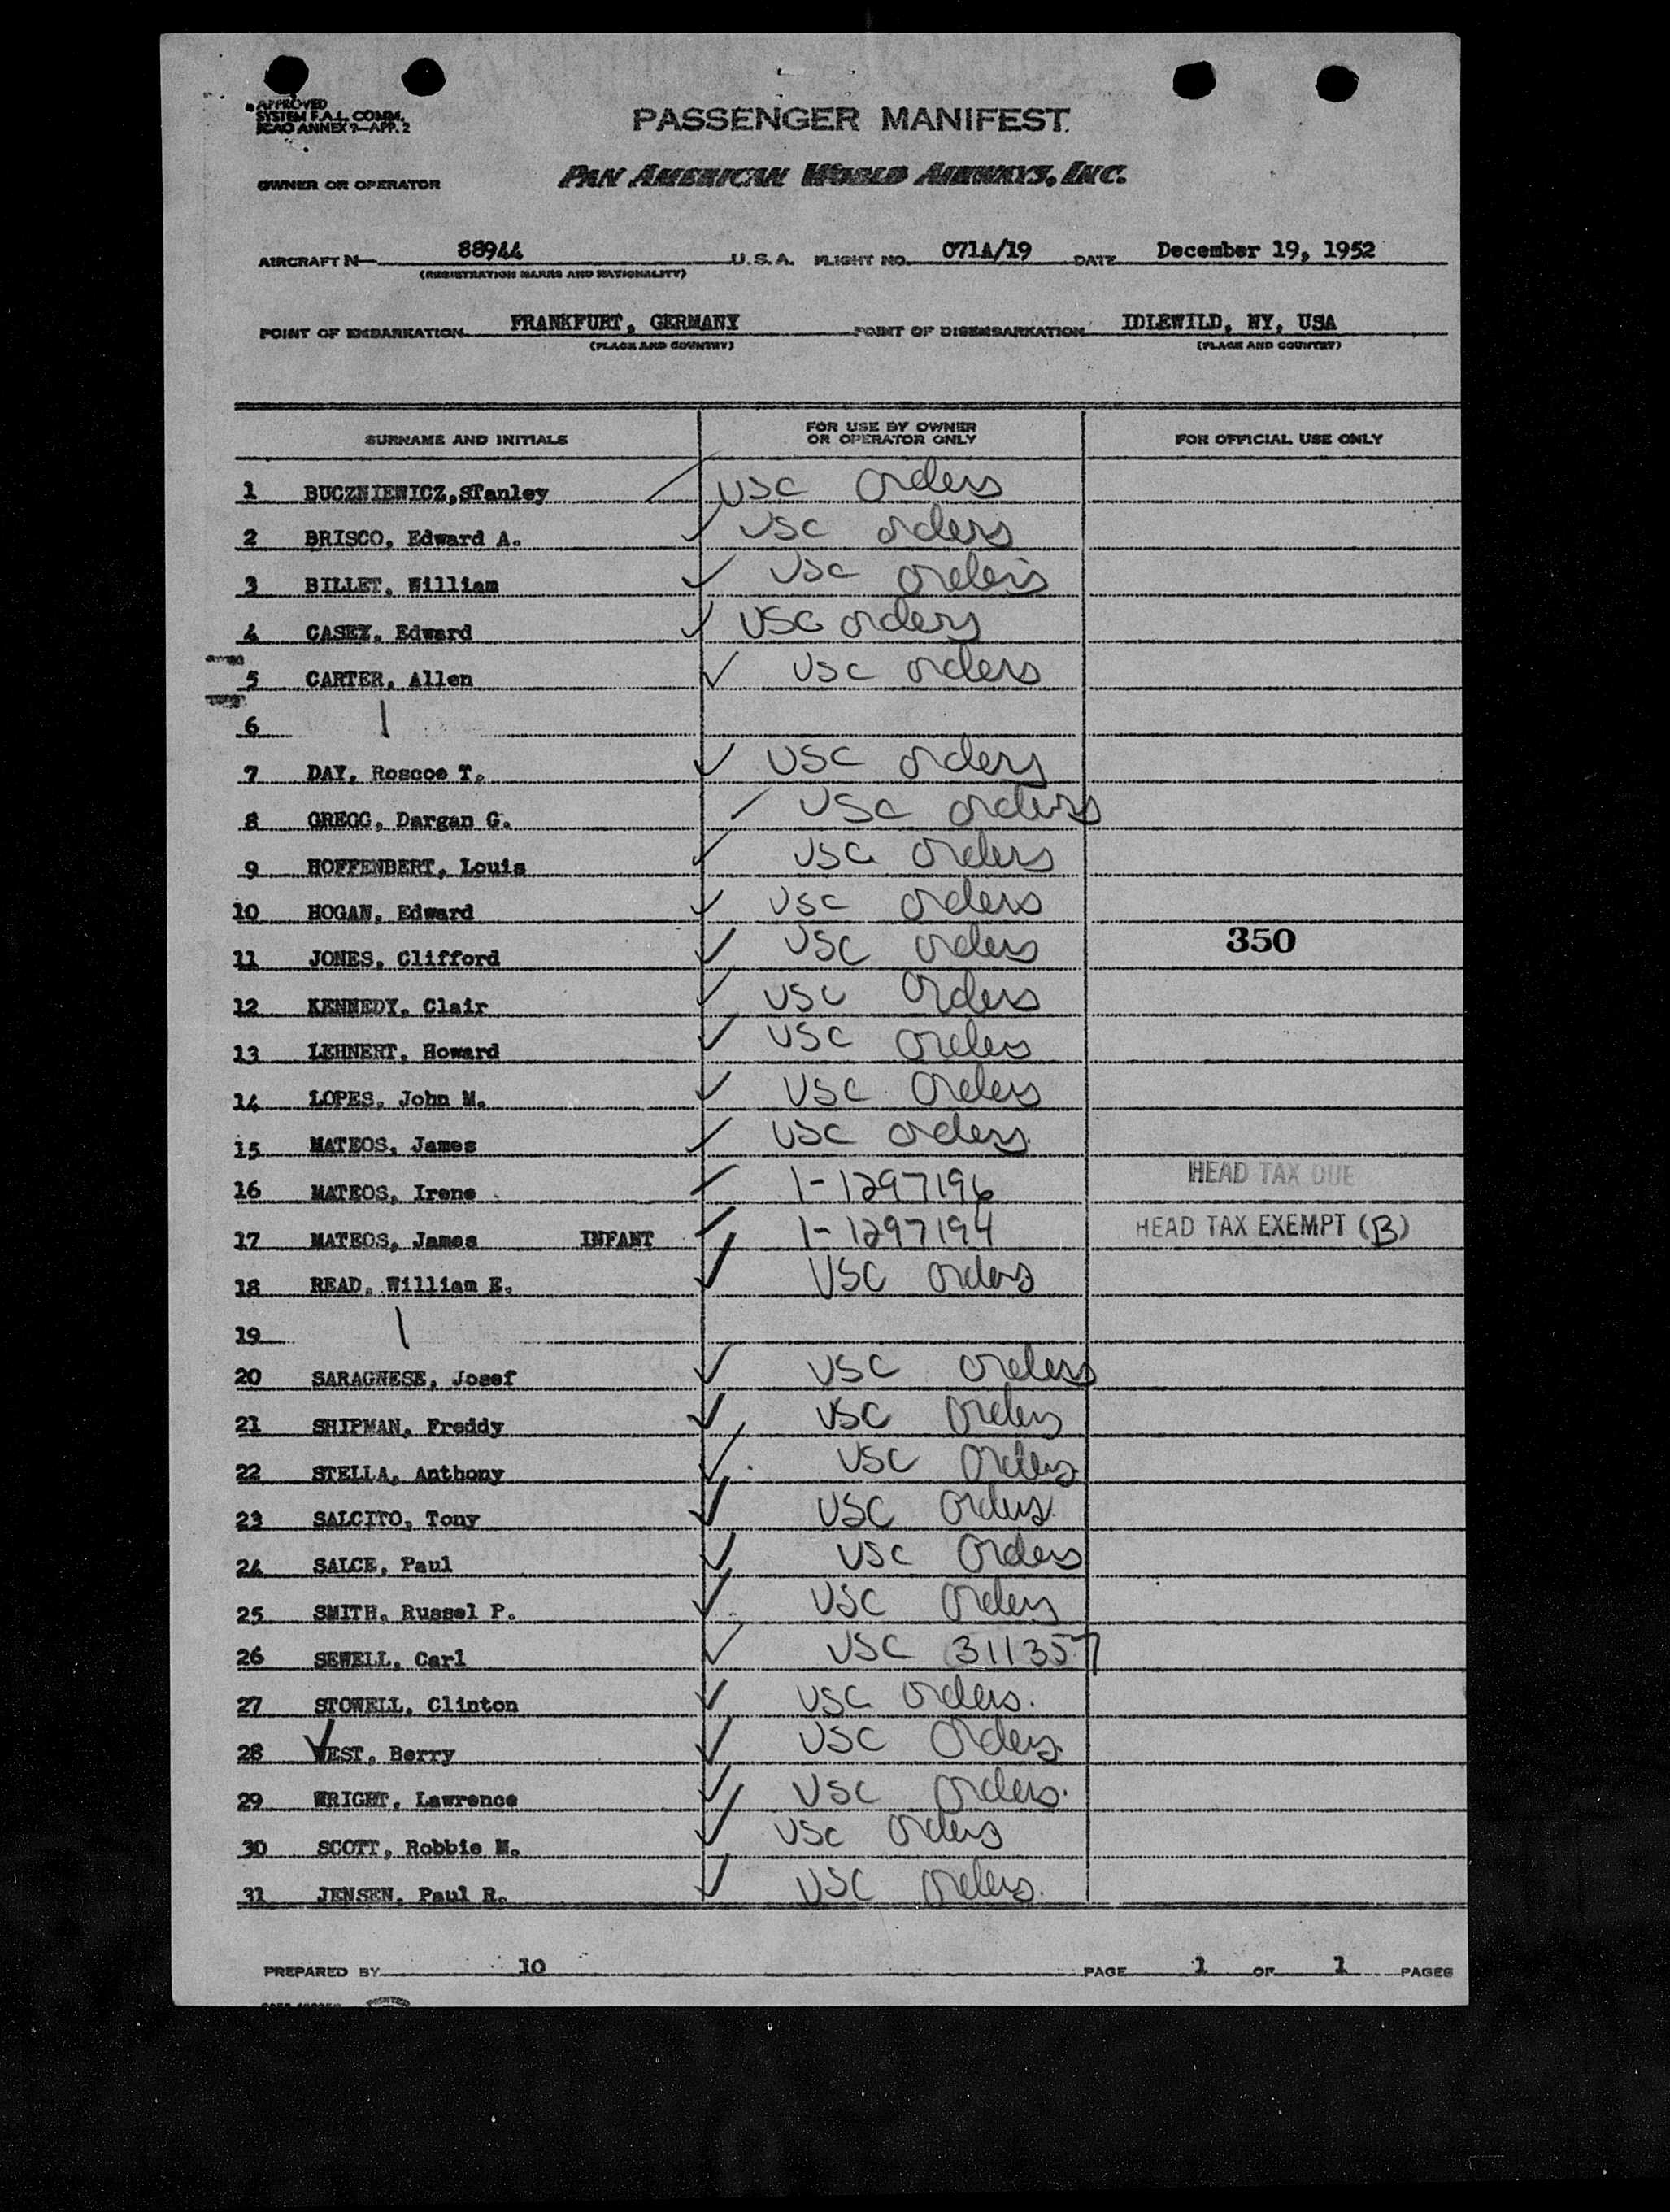 APPROVED
SYSTEM F.A.L. COMM.
ICAO ANNEX 9—APP. 2
PASSENGER MANIFEST
OWNER OR OPERATOR PAN AMERICAN WORLD AIRWAYS, INC.
AIRCRAFT N— 88944 U.S.A. FLIGHT NO. 071A/19 DATE December 19, 1952
(REGISTRATION MARKS AND NATIONALITY)
POINT OF EMBARKATION FRANKFURT, GERMANY POINT OF DISEMBARKATION IDLEWILD, NY, USA
(PLACE AND COUNTRY) (PLACE AND COUNTRY)
SURNAME AND INITIALS FOR USE BY OWNER OR OPERATOR ONLY FOR OFFICIAL USE ONLY
1 BUCZNIEWICZ,STanley USC Orders
2 BRISCO, Edward A. USC orders
3 BILLET, William USC orders
4 CASEY, Edward USC orders
5 CARTER, Allen USC orders
6
7 DAY, Roscoe T. USC orders
8 GREGG, Dargan G. USC orders
9 HOFFENBERT, Louis USC orders
10 HOGAN, Edward USC orders
11 JONES, Clifford USC orders 350
12 KENNEDY, Clair USC Orders
13 LEHNERT, Howard USC Orders
14 LOPES, John M. USC Orders
15 MATEOS, James USC orders
16 MATEOS, Irene 1-1297196 HEAD TAX DUE
17 MATEOS, James INFANT 1-1297194 HEAD TAX EXEMPT (B)
18 READ, William E. USC orders
19
20 SARAGNESE, Josef USC orders
21 SHIPMAN, Freddy USC Orders
22 STELLA, Anthony USC Orders
23 SALCITO, Tony USC Orders
24 SALCE, Paul USC Orders
25 SMITH, Russel P. USC Orders
26 SEWELL, Carl USC 311357
27 STOWELL, Clinton USC Orders.
28 WEST, Berry USC Orders.
29 WRIGHT, Lawrence USC Orders.
30 SCOTT, Robbie M. USC Orders
31 JENSEN, Paul R. USC Orders.
PREPARED BY 10 PAGE 1 OF 1 PAGES